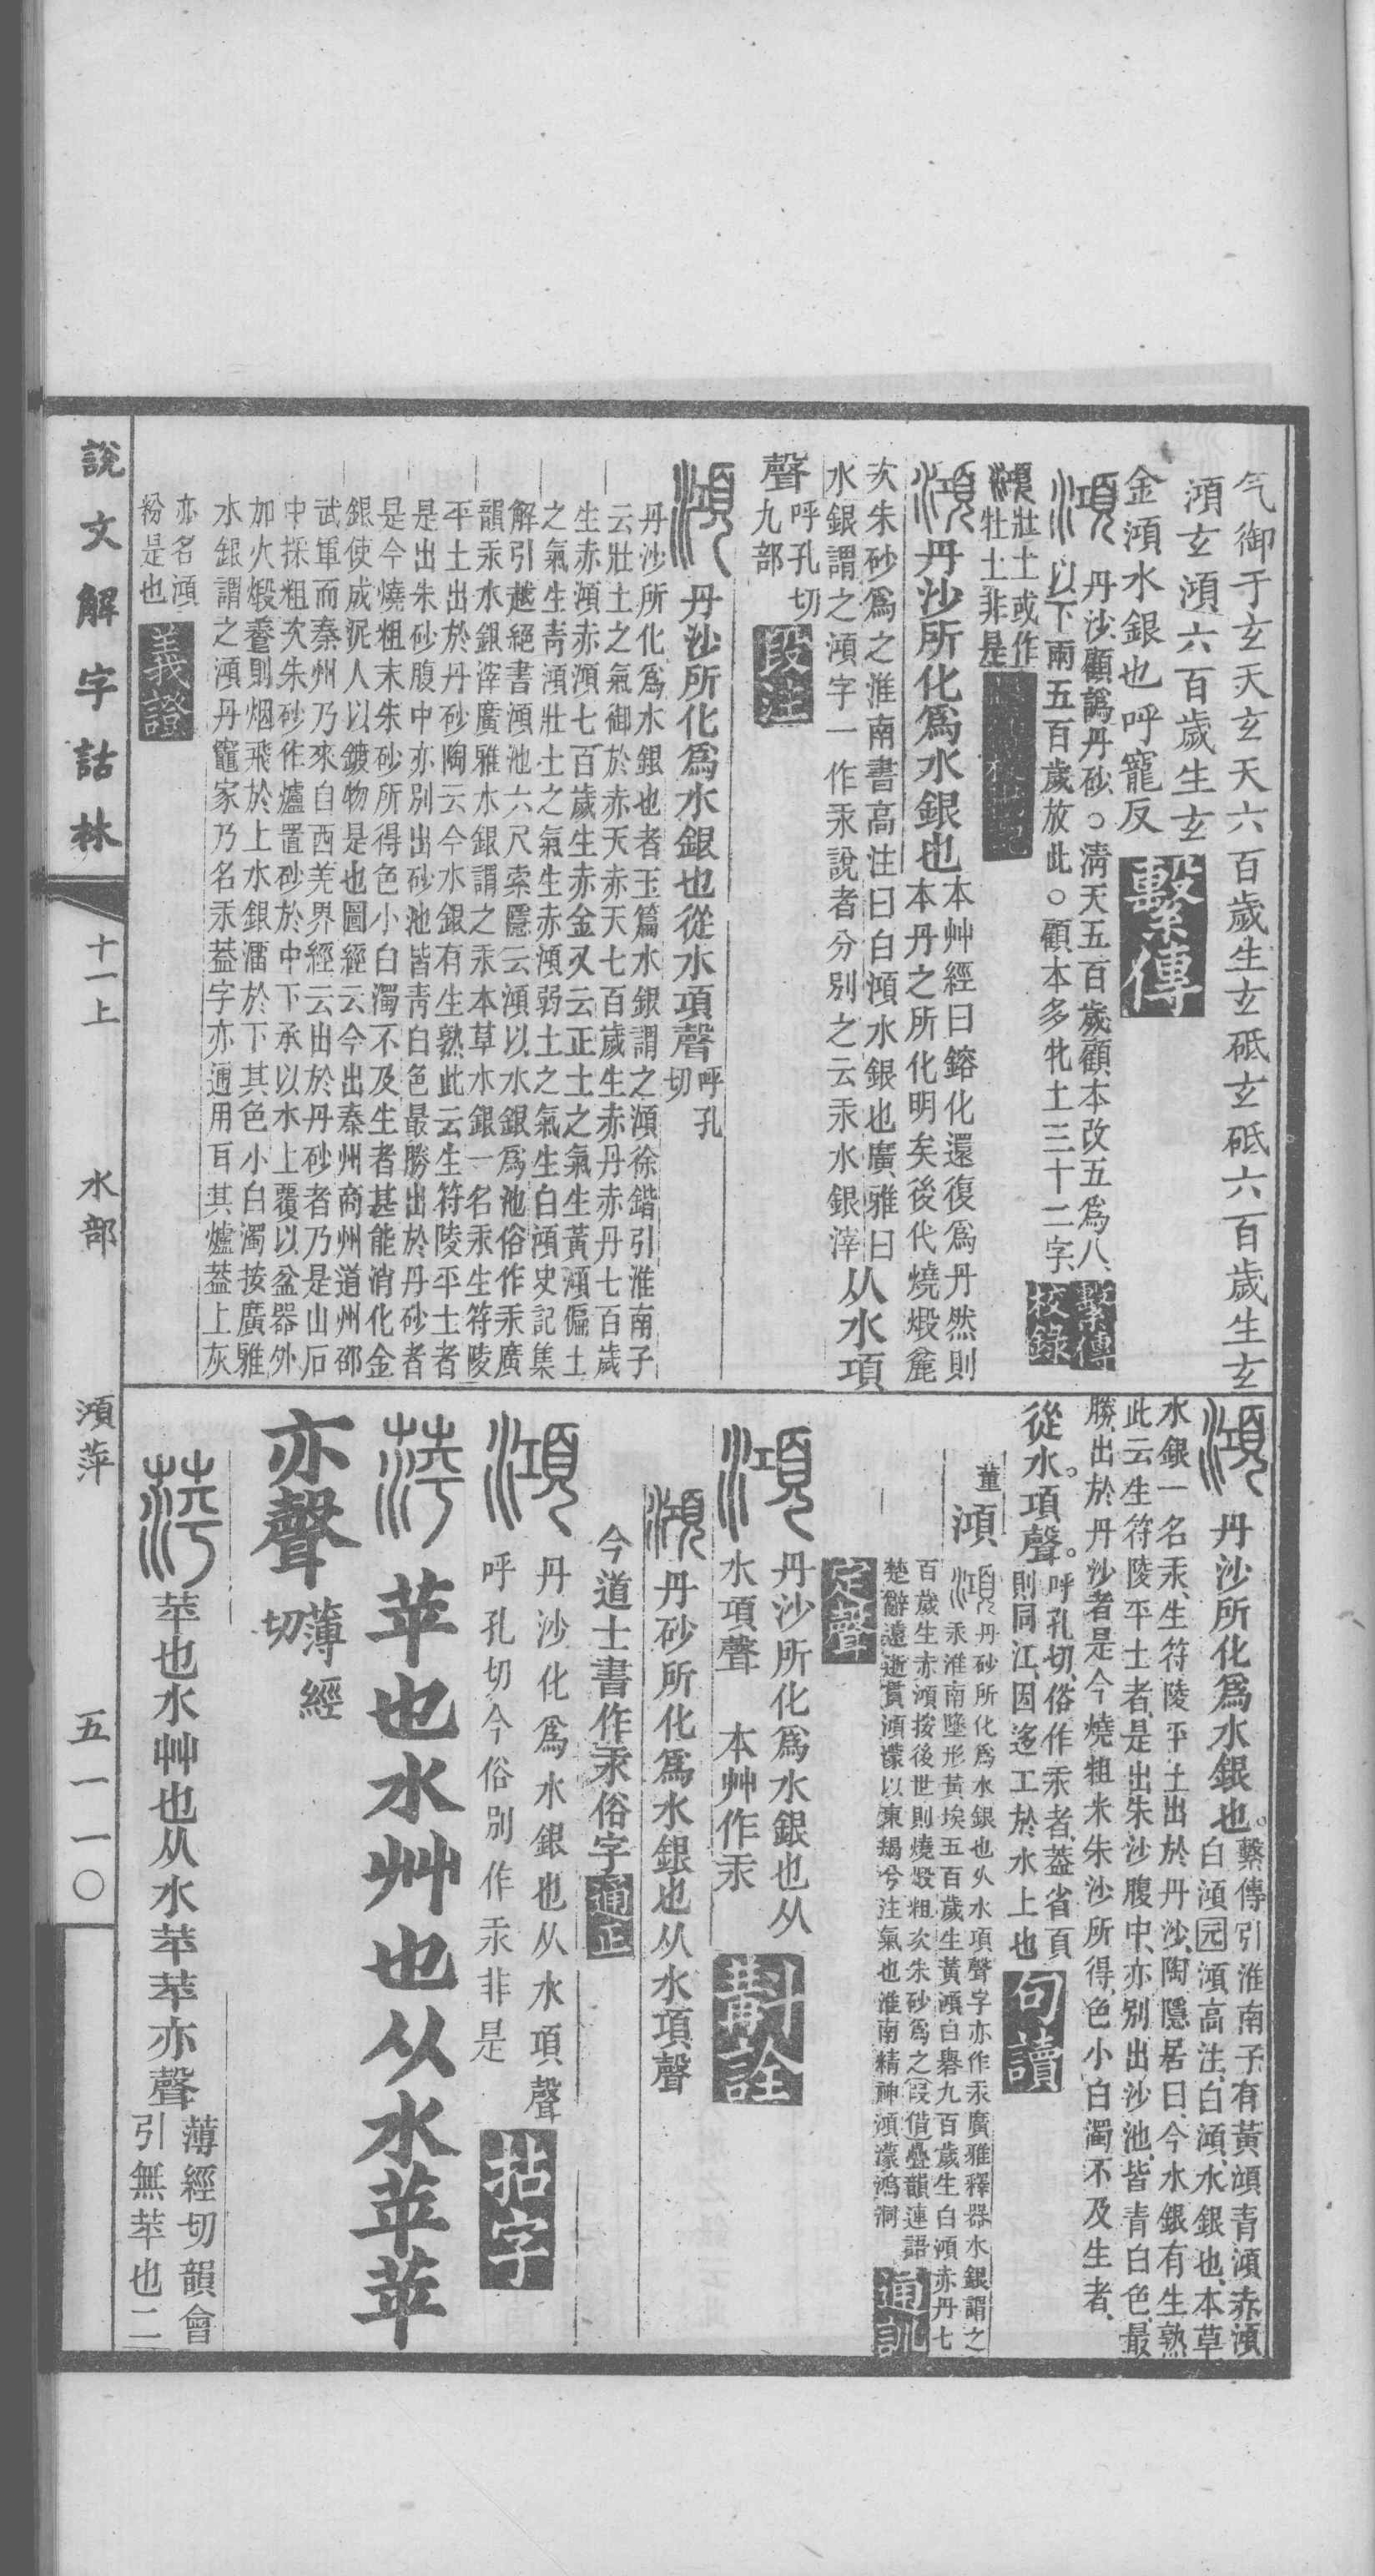 气御于玄天玄天六百歲生玄砥玄砥六百歲生玄
澒玄澒六百歲生玄
金澒水銀也呼寵反 繫傳
澒 丹沙顧譌丹砂○淸天五百歲顧本改五爲八
以下兩五百歲放此○顧本多牝土三十二字 繫傳校錄
壯土或作
牡土非是
澒丹沙所化爲水銀也本艸經曰鎔化還復爲丹然則
本丹之所化明矣後代燒煅麁
次朱砂爲之淮南書高注曰白澒水銀也廣雅曰
水銀謂之澒字一作汞說者分別之云汞水銀滓从水項
聲呼孔切
九部 段注
澒丹沙所化爲水銀也從水項聲呼孔
切
丹沙所化爲水銀也者玉篇水銀謂之澒徐鍇引淮南子
云壯土之氣御於赤天赤天七百歲生赤丹赤丹七百歲
生赤澒赤澒七百歲生赤金又云正土之氣生黃澒偏土
之氣生靑澒壯土之氣生赤澒弱土之氣生白澒史記集
解引越絕書澒池六尺索隱云澒以水銀爲池俗作汞廣
韻汞水銀滓廣雅水銀謂之汞本草水銀一名汞生符陵
平土出於丹砂陶云今水銀有生熟此云生符陵平土者
是出朱砂腹中亦別出砂池皆靑白色最勝出於丹砂者
是今燒粗末朱砂所得色小白濁不及生者甚能消化金
銀使成泥人以鍍物是也圖經云今出秦州商州道州邵
武軍而秦州乃來自西羌界經云出於丹砂者乃是山石
中採粗次朱砂作爐置砂於中下承以水上覆以盆器外
加火煅養則烟飛於上水銀溜於下其色小白濁按廣雅
水銀謂之澒丹竈家乃名汞葢字亦通用耳其爐葢上灰
亦名澒
粉是也 義證
澒 丹沙所化爲水銀也。繫傳引淮南子有黃澒青澒赤澒
白澒玄澒高注白澒水銀也本草
水銀一名汞生符陵平土出於丹沙陶隱居曰今水銀有生熟
此云生符陵平土者是出朱沙腹中亦別出沙池皆青白色最
勝出於丹沙者是今燒粗米朱沙所得色小白濁不及生者
從水。項聲。呼孔切俗作汞者葢省頁
則同江因迻工於水上也 句讀
董
澒 澒丹砂所化爲水銀也从水項聲字亦作汞廣雅釋器水銀謂之
汞淮南墬形黃埃五百歲生黃澒白礜九百歲生白澒赤丹七
百歲生赤澒按後世則燒煅粗次朱砂爲之叚借疊韻連語
楚辭遠逝貫澒濛以東朅兮注氣也淮南精神澒濛鴻洞 通訓
定聲
澒丹沙所化爲水銀也从
水項聲 本艸作汞 斠詮
澒丹砂所化爲水銀也从水項聲
今道士書作汞俗字 通正
澒丹沙化爲水銀也从水項聲
呼孔切今俗別作汞非是 拈字
萍苹也水艸也从水苹苹
亦聲薄經
切
萍苹也水艸也从水苹苹亦聲薄經切韻會
引無苹也二
說文解字詁林 十一上 水部 澒萍 五一一〇